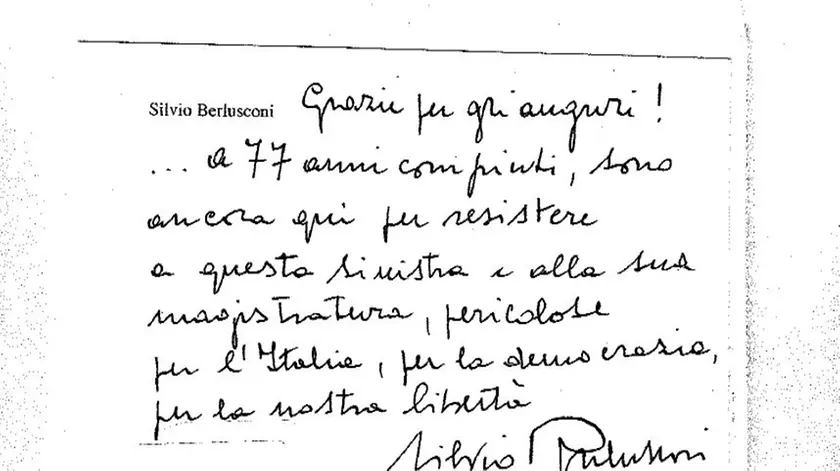 Silvio Berlusconi Grazie per gli auguri!
... a 77 anni compiuti, sono
ancora qui per resistere
a questa sinistra e alla sua
magistratura, pericolose
per l'Italia, per la democrazia,
per la nostra libertà
Silvio Berlusconi